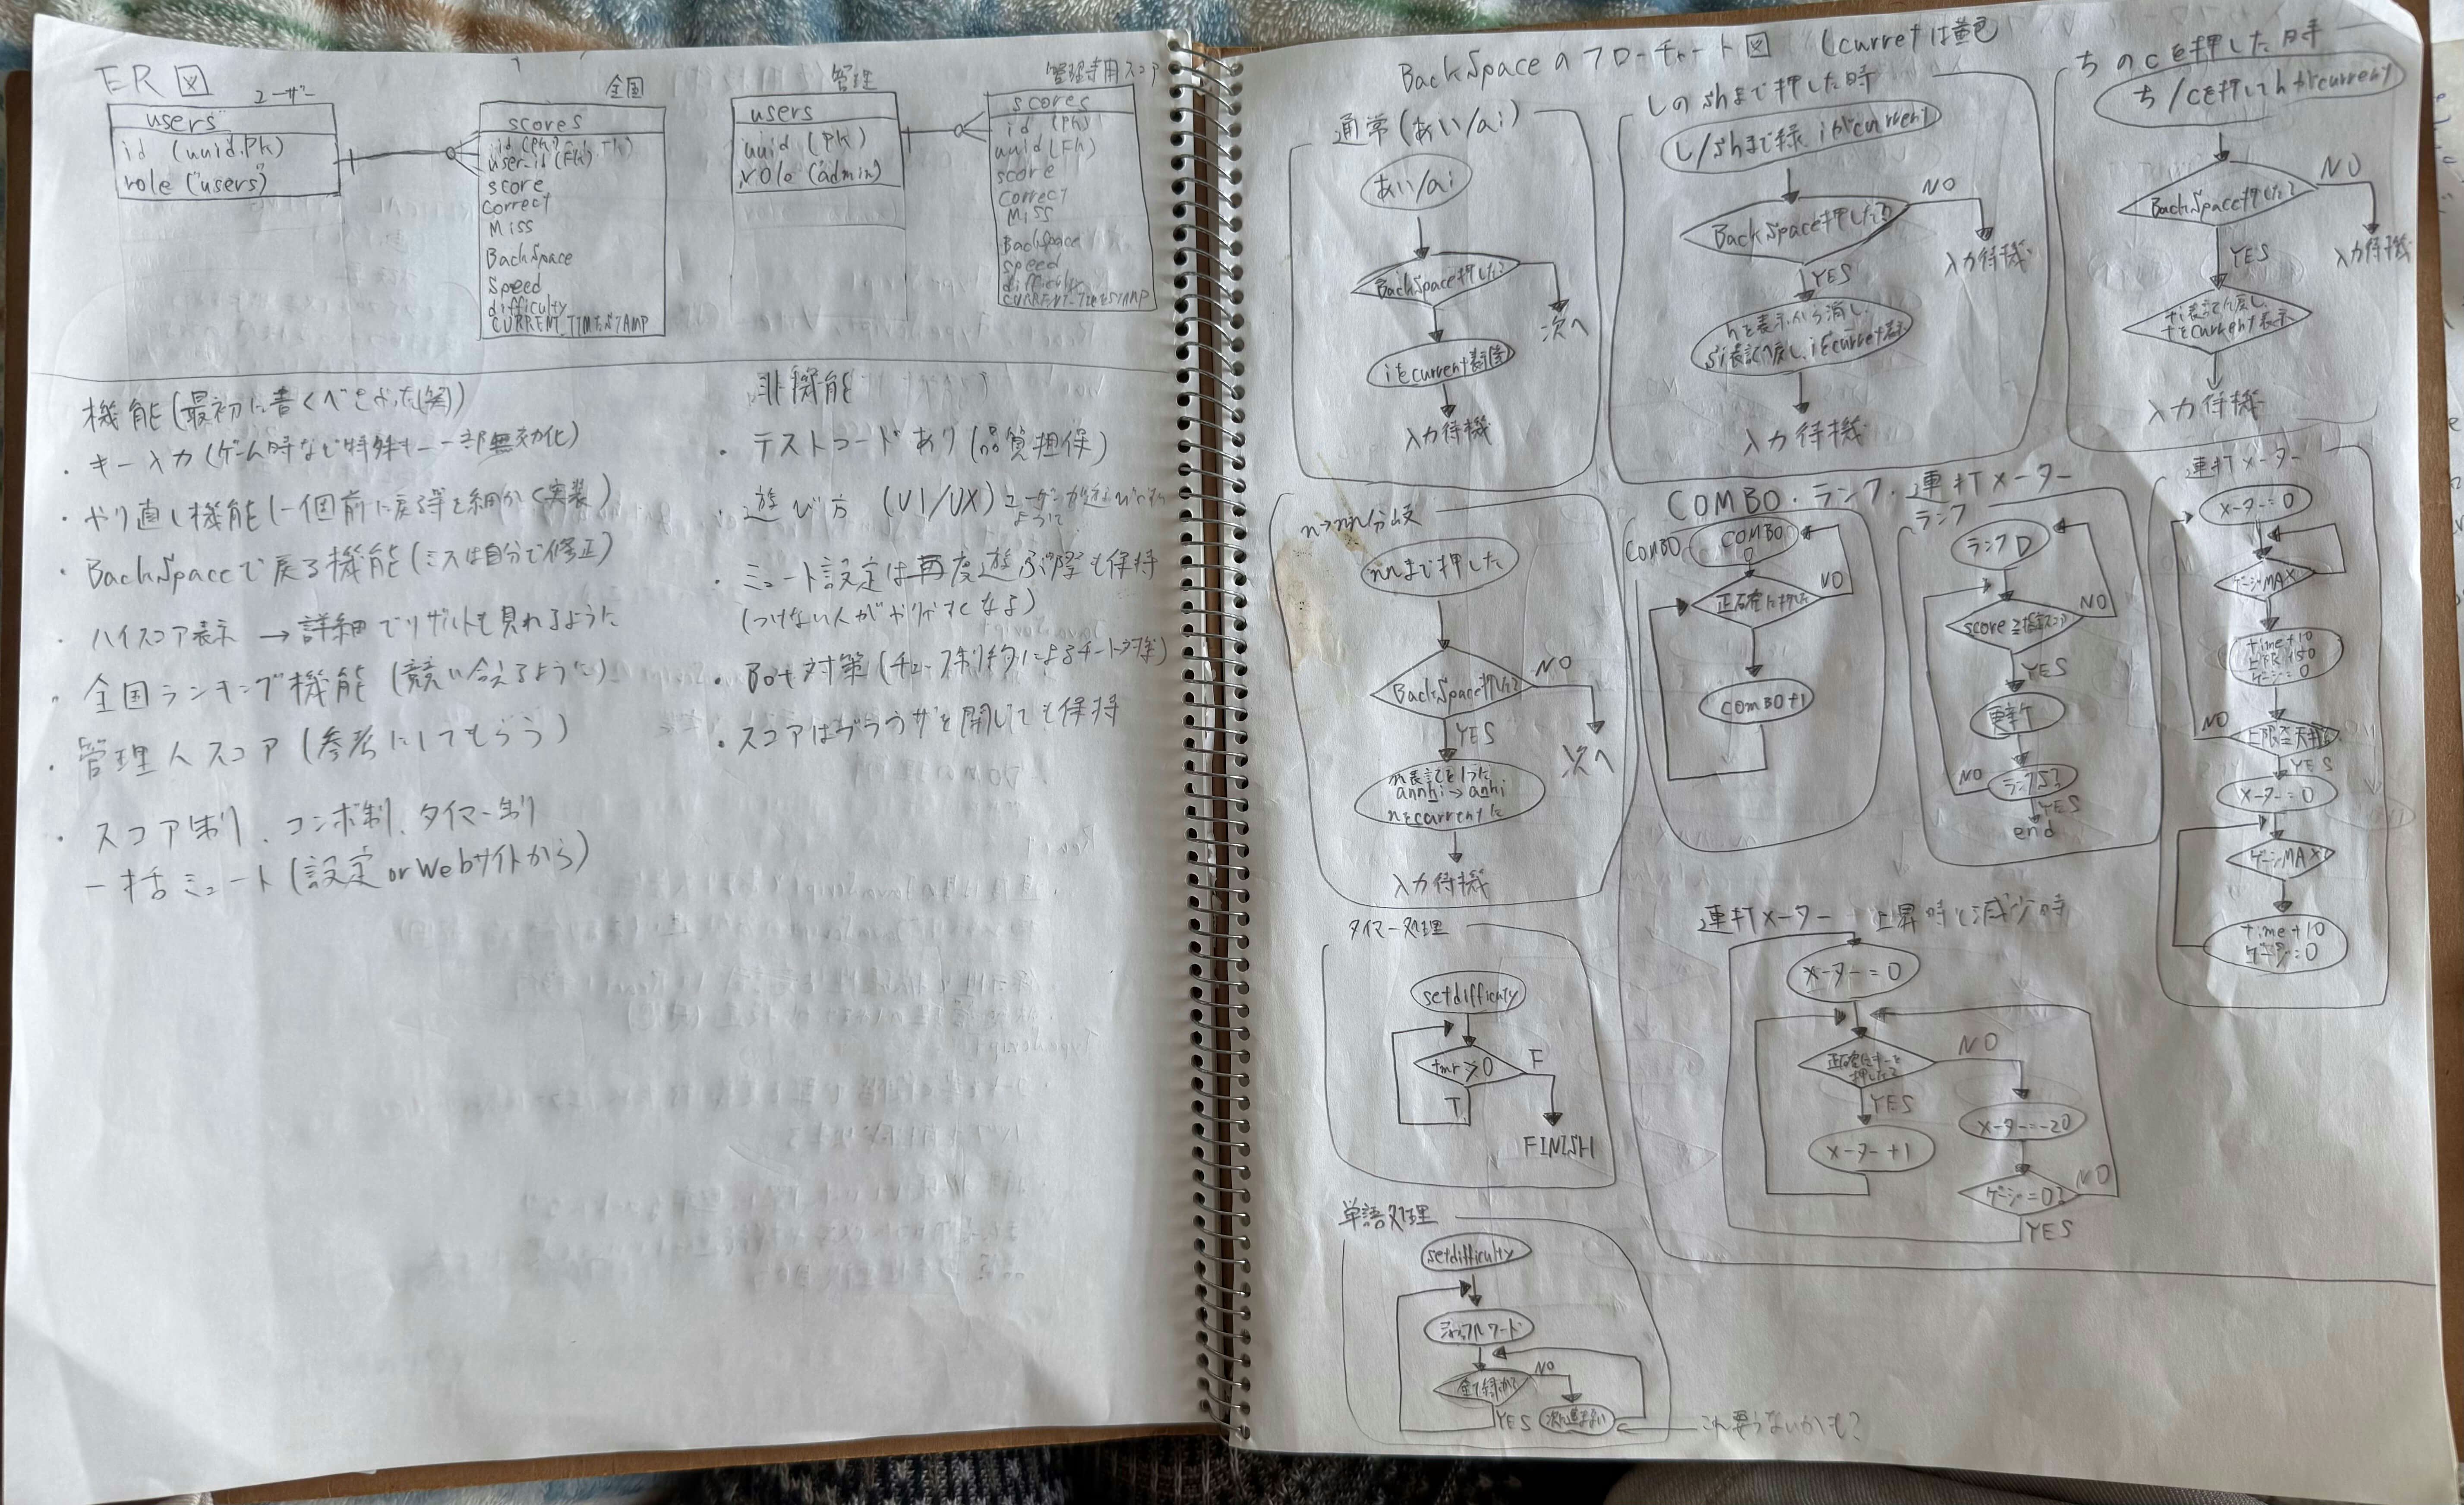 ER図
ユーザー
users
id (uuid.Pk)
role ("users")
全国
scores
id (Pk)
user-id (Fk)
score
correct
Miss
BackSpace
Speed
difficulty
CURRENT_TIMESTAMP
管理
users
uuid (Pk)
role (admin)
管理専用スコア
scores
id (Pk)
uuid (Fk)
score
correct
Miss
BackSpace
speed
difficulty
CURRENT_TIMESTAMP
機能(最初に書くべきだった(笑))
・キー入力(ゲーム時など特殊キー一部無効化)
・やり直し機能(一個前に戻る等を細かく実装)
・BackSpaceで戻る機能(ミスは自分で修正)
・ハイスコア表示 → 詳細でリザルトも見れるように
・全国ランキング機能 (競い合えるように)
・管理人スコア (参考にしてもらう)
・スコア制、コンボ制、タイマー制
一括ミュート(設定 or Webサイトから)
非機能
・テストコードあり (品質担保)
・遊び方 (UI/UX) ユーザーが
ように
・ミュート設定は再度遊ぶ際も保持
(つけない人がやりやすくなる)
・Bot対策 (
・スコアはブラウザを閉じても保持
BackSpaceのフローチャート図 (curretは黄色
通常(あい/ai)
あい/ai
BackSpace押した?
次へ
iをcurrent表示
入力待機
しのshまで押した時
し/shまで緑 iがcurrent
BackSpace押した?
NO
入力待機
YES
hを表示から消し
si表記へ戻し、iをcurret表示
入力待機
ちのcを押した時
ち/cを押してhがcurrent
BackSpace押した?
NO
入力待機
YES
ti表記へ戻し
tをcurrent表示
入力待機
n→nn分岐
nnまで押した
BackSpace押した?
NO
次へ
YES
n表記を1つに
annhi→anhi
nをcurrentに
入力待機
COMBO・ランク・連打メーター
COMBO
COMBO
0
正確に押した
NO
COMBO+1
ランク
ランクD
score≧指定スコア
NO
YES
更新
ランクS?
NO
YES
end
連打メーター
メーター=0
ゲージMAX
time+10
上限150
ゲージ=0
NO
YES
メーター=0
ゲージMAX
time+10
ゲージ=0
連打メーター 上昇時と減少時
メーター=0
正確にキーを
押した?
NO
YES
メーター+1
メーター=-20
ゲージ=0?
NO
YES
タイマー処理
setdifficuty
tmr>0
F
T
FINISH
単語処理
setdifficulty
シャッフルワード
全て緑か?
NO
YES
次へ進まない
これ要らないかも?